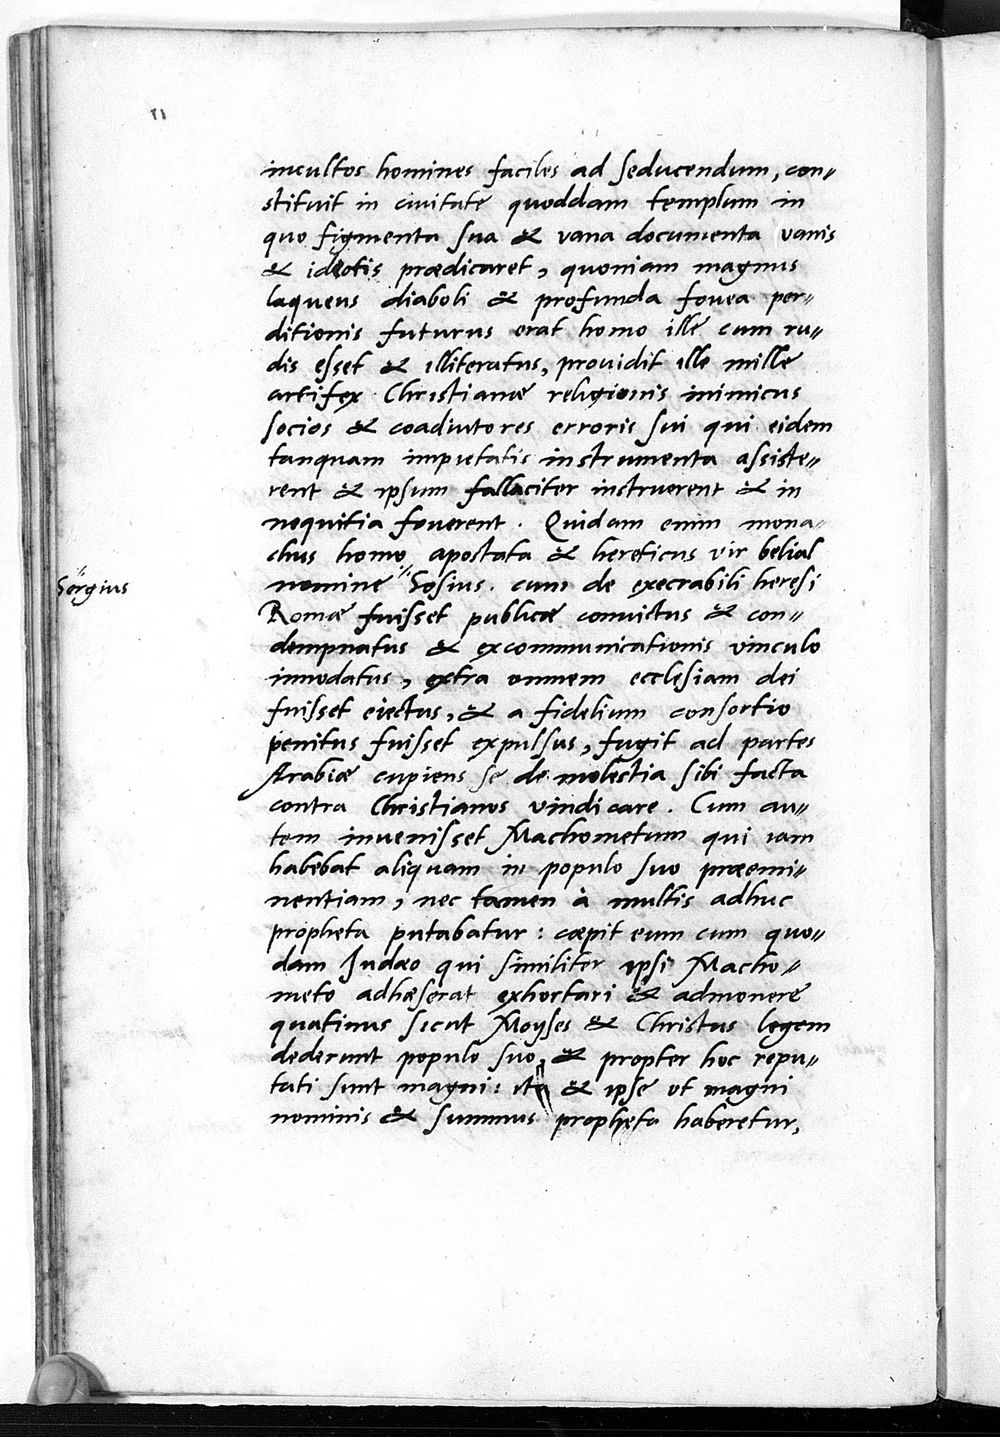 incultos homines faciles ad seducendum, con=
stituit in ciuitate quoddam templum in
quo figmenta sua & vana documenta vanis
& ideotis prædicaret, quoniam magnus
laqueus diaboli & profunda fouea per=
ditionis futurus erat homo ille cum ru=
dis esset & illiteratus, prouidit ille mille
artifex Christianæ religionis inimicus
socios & coadiutores erroris sui qui eidem
tanquam impietatis instrumenta assiste=
rent & ipsum fallaciter instruerent & in
nequitia fouerent. Quidam enim mona=
chus homo apostata & hereticus vir belial
Sergius
nomine Sosius. cum de execrabili heresi
Romæ fuisset publicæ conuictus & con=
dempnatus & excommunicationis vinculo
innodatus, extra omnem ecclesiam dei
fuisset eiectus, & a fidelium consortio
penitus fuisset expulsus, fugit ad partes
Arabiæ cupiens se de molestia sibi facta
contra Christianos vindicare. Cum au=
tem inuenisset Machometum qui iam
habebat aliquam in populo suo præemi=
nentiam, nec tamen à multis adhuc
propheta putabatur: cæpit eum cum quo=
dam Judæo qui similiter ipsi Macho=
meto adhæserat exhortari & admonere
quatinus sicut Moyses & Christus legem
dederunt populo suo, & propter hoc repu=
tati sunt magni: ita & ipse ut magni
nominis & summus propheta haberetur,